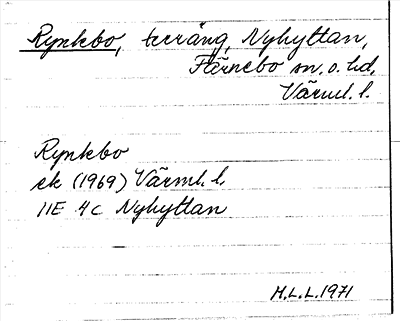 Rynkbo, terräng, Nyhyttan,
Färnebo sn, o. hd,
Värml. l.
Rynkbo
ek (1969) Värml. l.
11E 4c Nyhyttan
H.L.L. 1971